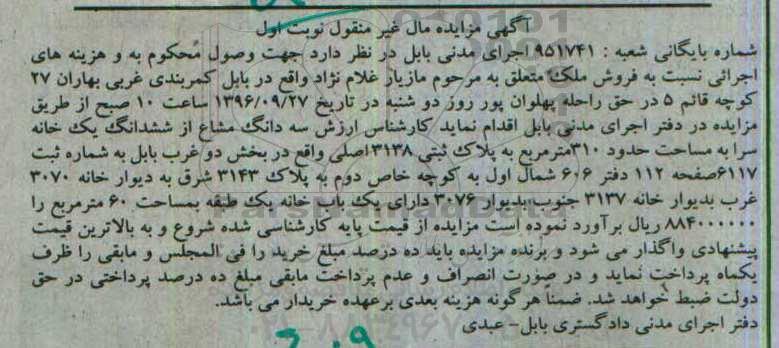 آگهی مزایده مال غیر منقول نوبت اول
شماره بایگانی شعبه : ۹۵۱۷۴۱ اجرای مدنی بابل در نظر دارد جهت وصول محکوم به و هزینه های
اجرائی نسبت به فروش ملک متعلق به مرحوم مازیار غلام نژاد واقع در بابل کمربندی غربی بهاران ۲۷
کوچه قائم ۵ در حق راحله پهلوان پور روز دو شنبه در تاریخ ۱۳۹۶/۰۹/۲۷ ساعت ۱۰ صبح از طریق
مزایده در دفتر اجرای مدنی بابل اقدام نماید کارشناس ارزش سه دانگ مشاع از ششدانگ یک خانه
سرا به مساحت حدود ۳۱۰مترمربع به پلاک ثبتی ۳۱۳۸اصلی واقع در بخش دو غرب بابل به شماره ثبت
۶۱۱۷صفحه ۱۱۲ دفتر ۶۰۶ شمال اول به کوچه خاص دوم به پلاک ۳۱۴۳ شرق به دیوار خانه ۳۰۷۰
غرب بدیوار خانه ۳۱۳۷ جنوب بدیوار ۳۰۷۶ دارای یک باب خانه یک طبقه بمساحت ۶۰ مترمربع را
۸۸۴۰۰۰۰۰۰ ریال برآورد نموده است مزایده از قیمت پایه کارشناسی شده شروع و به بالاترین قیمت
پیشنهادی واگذار می شود و برنده مزایده باید ده درصد مبلغ خرید را فی المجلس و مابقی را ظرف
یکماه پرداخت نماید و در صورت انصراف و عدم پرداخت مابقی مبلغ ده درصد پرداختی در حق
دولت ضبط خواهد شد. ضمناً هرگونه هزینه بعدی برعهده خریدار می باشد.
دفتر اجرای مدنی دادگستری بابل- عبدی